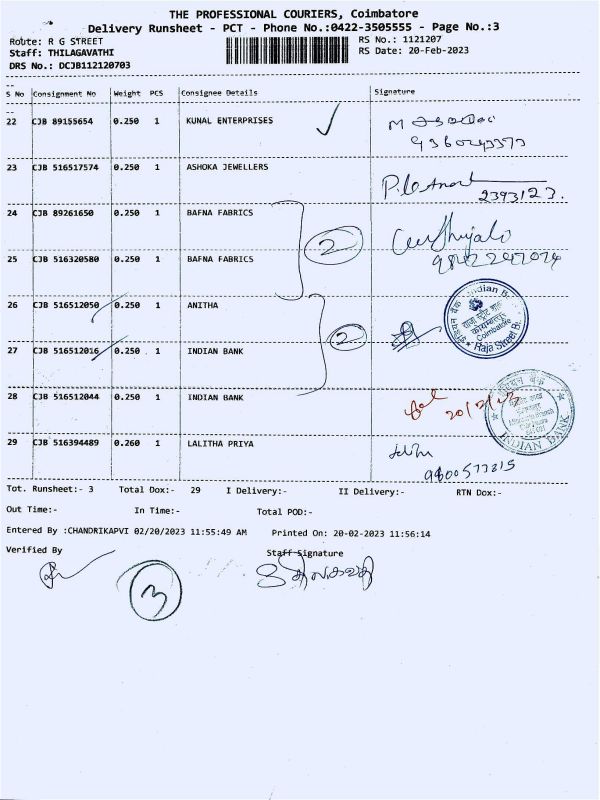 THE PROFESSIONAL COURIERS, Coimbatore
Delivery Runsheet - PCT - Phone No.:0422-3505555 - Page No.:3
Route: R G STREET
RS No.: 1121207
Staff: THILAGAVATHI
RS Date: 20-Feb-2023
DRS No.: DCJB112120703
S No Consignment No Weight PCS Consignee Details Signature
22 CJB 89155654 0.250 1 KUNAL ENTERPRISES
23 CJB 516517574 0.250 1 ASHOKA JEWELLERS
2393123.
24 CJB 89261650 0.250 1 BAFNA FABRICS
2
25 CJB 516320580 0.250 1 BAFNA FABRICS
9842247074
26 CJB 516512050 0.250 1 ANITHA
2
Raja Street Br.
Coimbatore
27 CJB 516512016 0.250 1 INDIAN BANK
28 CJB 516512044 0.250 1 INDIAN BANK
20/2/23
INDIAN BANK
29 CJB 516394489 0.260 1 LALITHA PRIYA
9800577815
Tot. Runsheet:- 3 Total Dox:- 29 I Delivery:- II Delivery:- RTN Dox:-
Out Time:- In Time:- Total POD:-
Entered By :CHANDRIKAPVI 02/20/2023 11:55:49 AM Printed On: 20-02-2023 11:56:14
Verified By Staff Signature
3